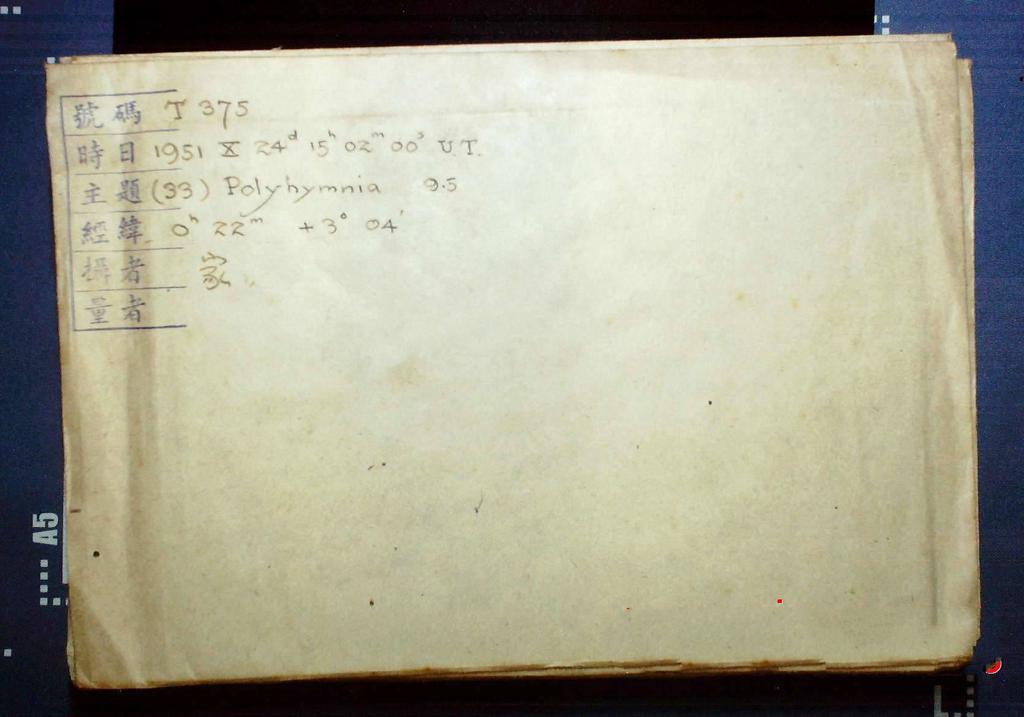 號碼 T 375
時日 1951 X 24ᵈ 15ʰ 02ᵐ 00ˢ U.T.
主題 (33) Polyhymnia 9.5
經緯 0ʰ 22ᵐ +3° 04'
攝者 家
量者
A5